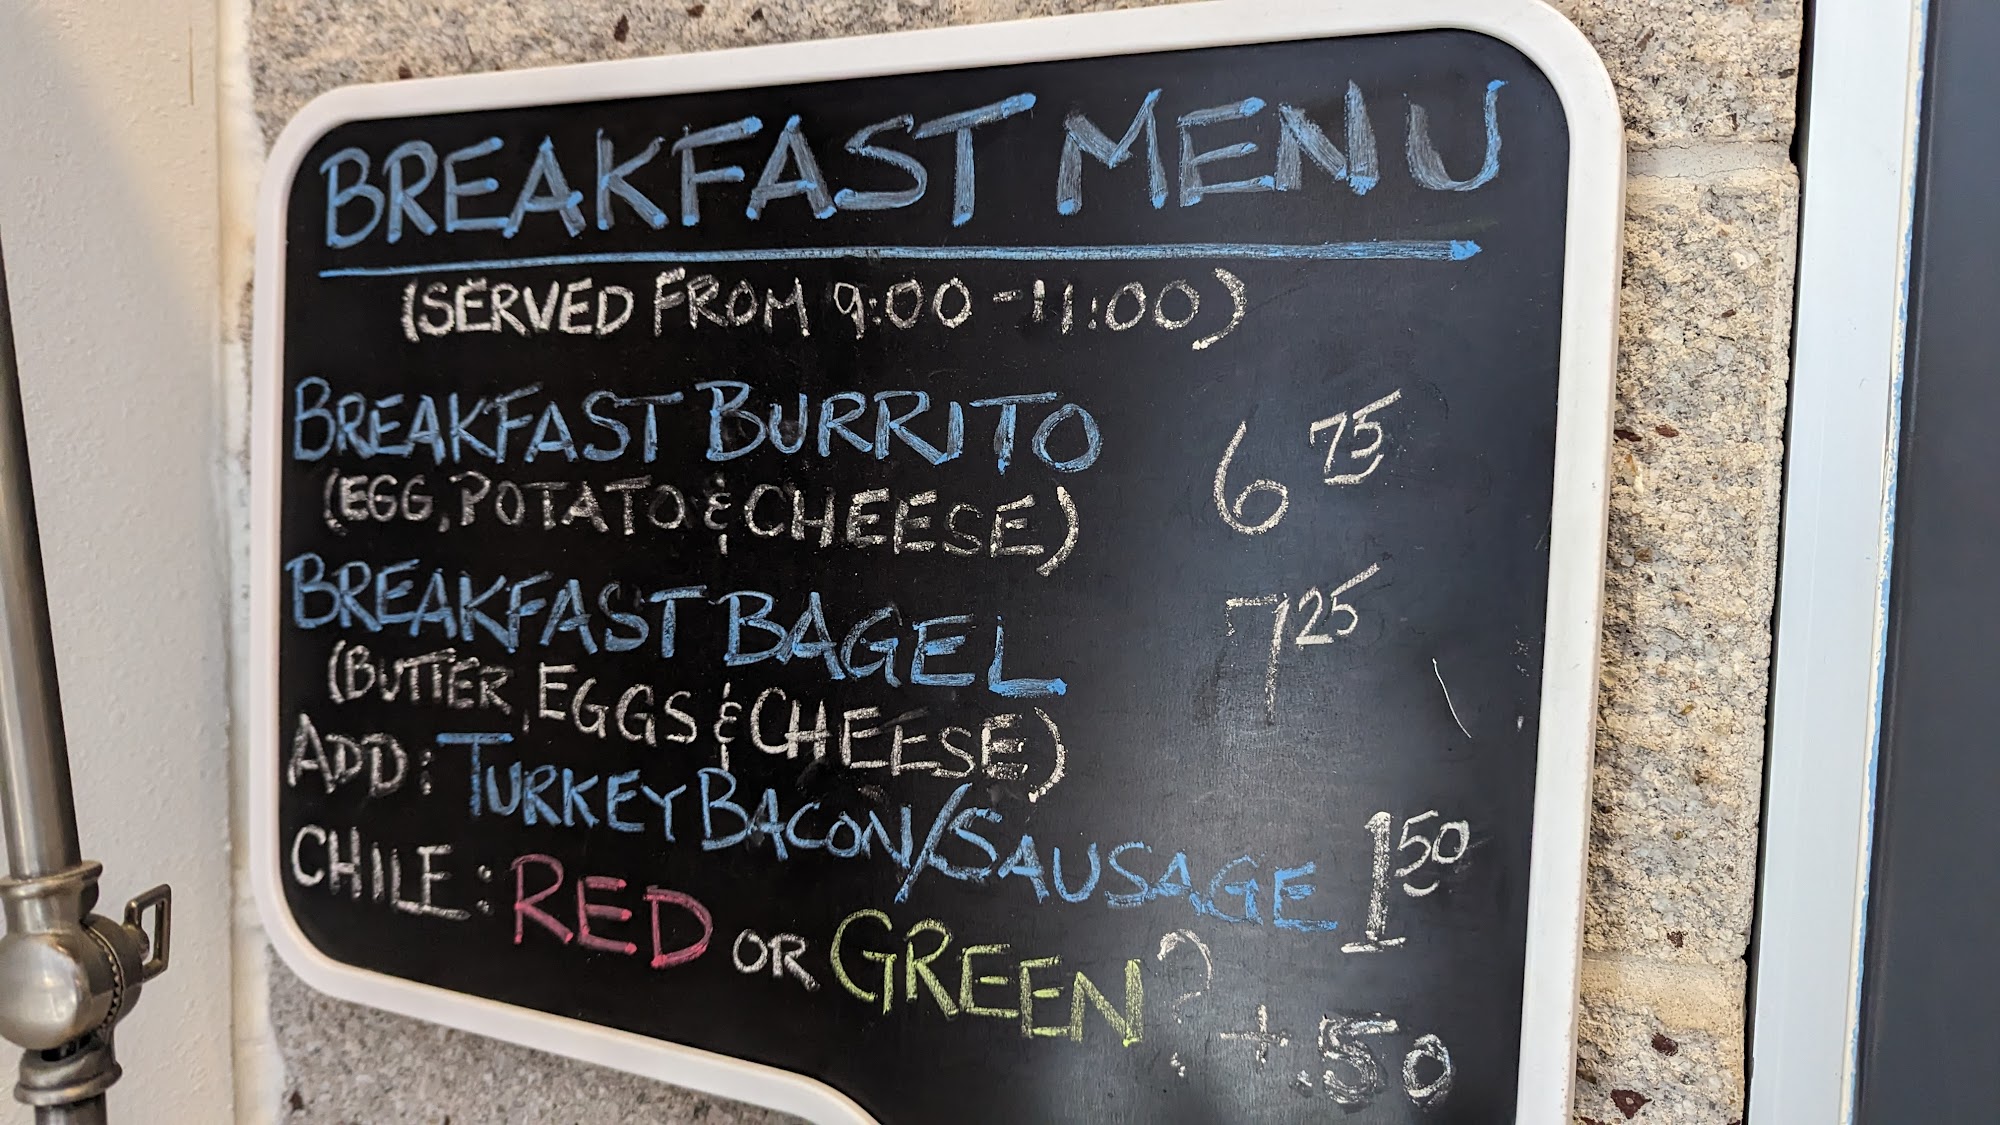 BREAKFAST MENU
(SERVED FROM 9:00-11:00)
BREAKFAST BURRITO 6 75
(EGG, POTATO & CHEESE)
BREAKFAST BAGEL 7 25
(BUTTER, EGGS & CHEESE)
ADD: TURKEY BACON/SAUSAGE 1 50
CHILE: RED OR GREEN? +.50